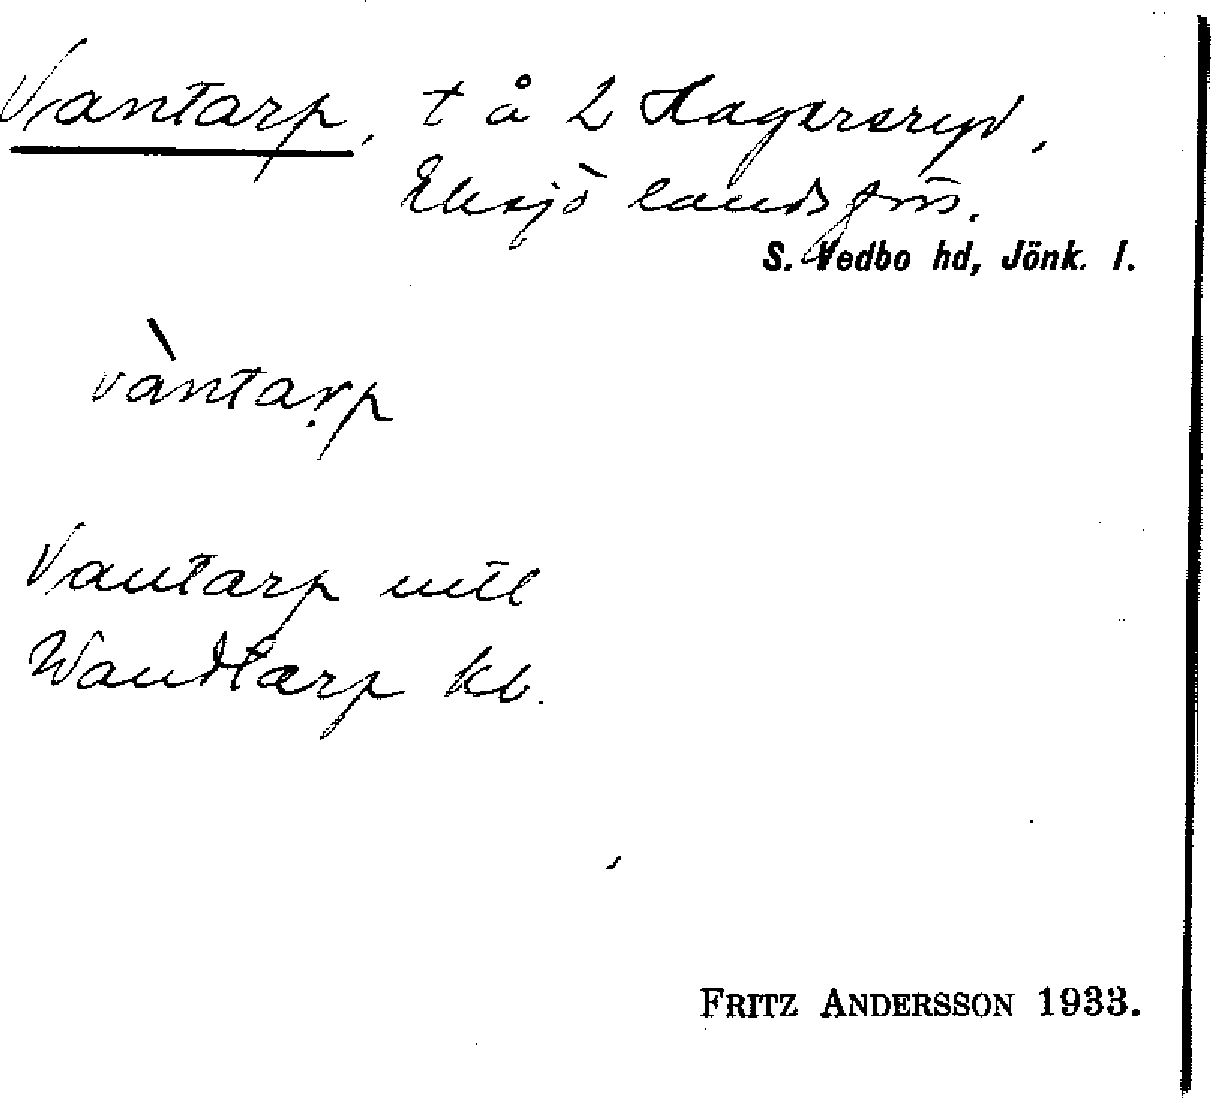 Vantarp, t å L Hagersryd,
Eksjö landsförs.
S. Vedbo hd, Jönk. l.
vàntarp
Vantarp mtl
Wandtarp kb.
FRITZ ANDERSSON 1933.